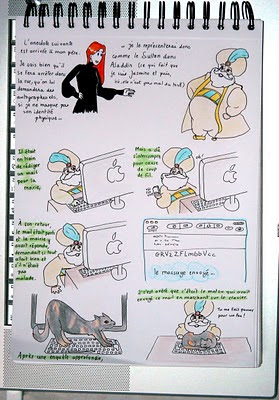 L'anecdote suivante
est arrivée à mon père.
Je sais bien qu'il
se fera arrêter dans
la rue, qu'on lui
demandera des
autographes etc.
si je ne masque pas
son identité
physique -
- je le représenterai donc
comme le Sultan dans
Aladdin (ce qui fait que
je suis Jasmine et
Il était
en train
de rédiger
un mail
pour la
mairie,
Mais a dû
s'interrompre
pour cause
de coup
de fil.
À son retour,
le mail était parti
et la mairie
avait répondu,
demandant si tout
allait bien et
s'il n'était
pas
malade.
GRVzZFLmbbVcc
le message envoyé -
Après une enquête approfondie,
il s'est avéré que c'était le matou qui avait
envoyé ce mail en marchant sur le clavier.
Tu me fais passer
pour un fou!